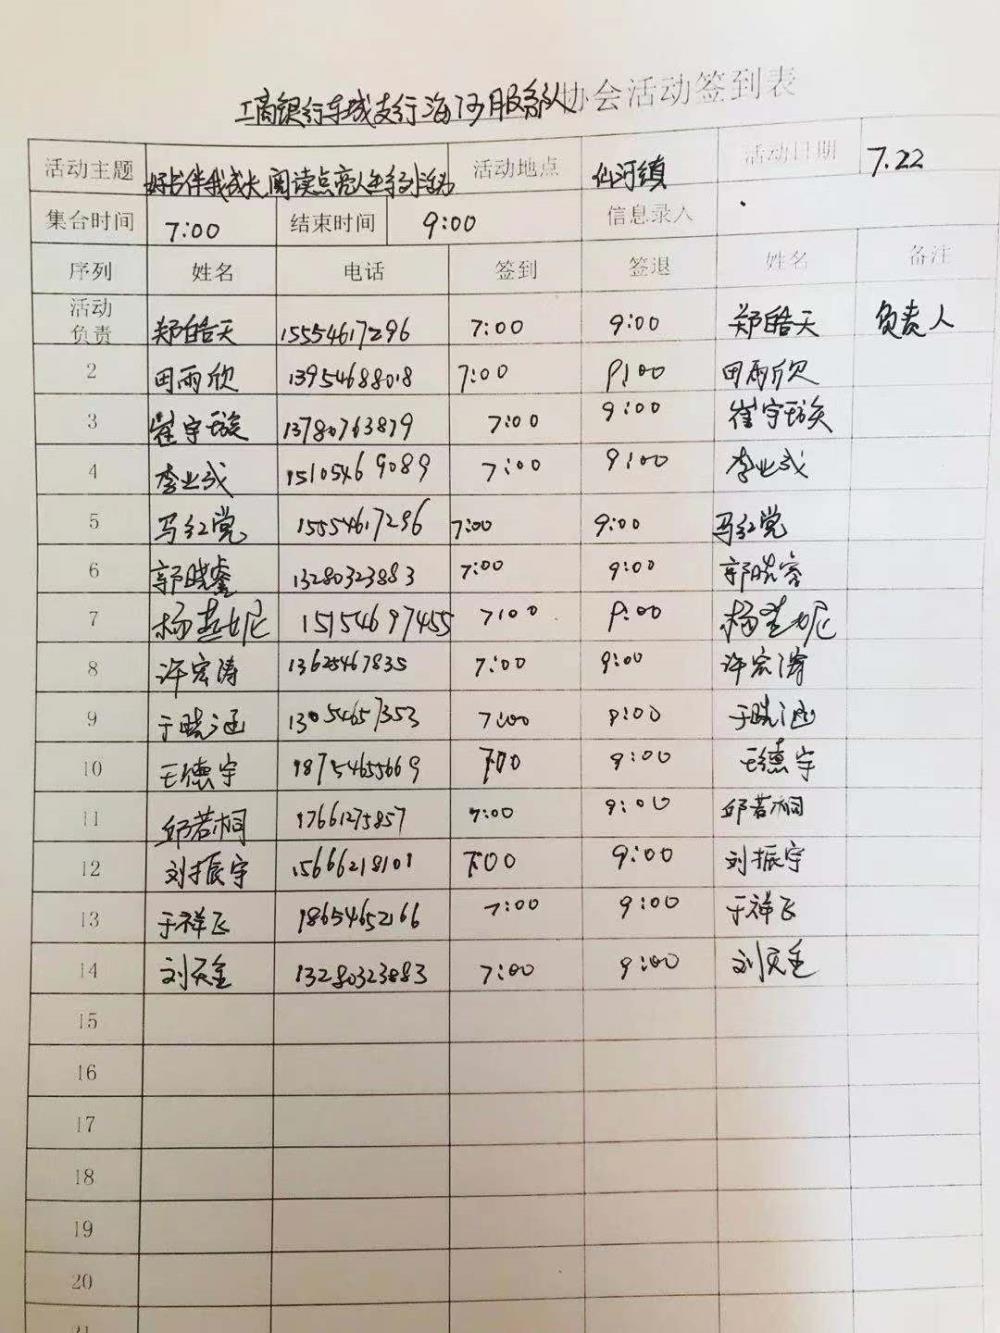 工商银行东城支行海河服务队协会活动签到表
活动主题 好书伴我成长 阅读点亮人生系列活动 活动地点 仙河镇 活动日期 7.22
集合时间 7:00 结束时间 9:00 信息录入
序列 姓名 电话 签到 签退 姓名 备注
活动
负责 郑皓天 15554617296 7:00 9:00 郑皓天 负责人
2 田雨欣 13954688018 7:00 9:00 田雨欣
3 崔宇璇 13780763879 7:00 9:00 崔宇璇
4 李业成 15105469089 7:00 9:00 李业成
5 马红党 15554617296 7:00 9:00 马红党
6 郭晓 13280323883 7:00 9:00 郭晓
7 杨燕妮 15154697455 7:00 9:00 杨燕妮
8 许宏涛 13625467835 7:00 9:00 许宏涛
9 于晓涵 13054657353 7:00 9:00 于晓涵
10 王德宇 18754655669 7:00 9:00 王德宇
11 邱若桐 17661275857 7:00 9:00 邱若桐
12 刘振宇 15666218101 7:00 9:00 刘振宇
13 于祥飞 18654652166 7:00 9:00 于祥飞
14 刘天全 13280323883 7:00 9:00 刘天全
15
16
17
18
19
20
21